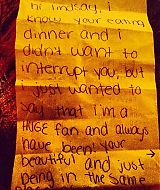 hi lindsay, i
know your eating
dinner and i
didn't want to
interrupt you, but
I just wanted to
say that I'm a
HUGE fan and always
have been! your
beautiful and just
being in the same